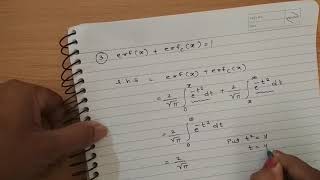 ③ erf(x) + erfc(x) = 1
L.h.S = erf(x) + erfc(x)
= 2/√π ∫₀ˣ e^-t² dt + 2/√π ∫ₓ^∞ e^-t² dt
= 2/√π ∫₀^∞ e^-t² dt
Put t² = y
t = y
= 2/√π